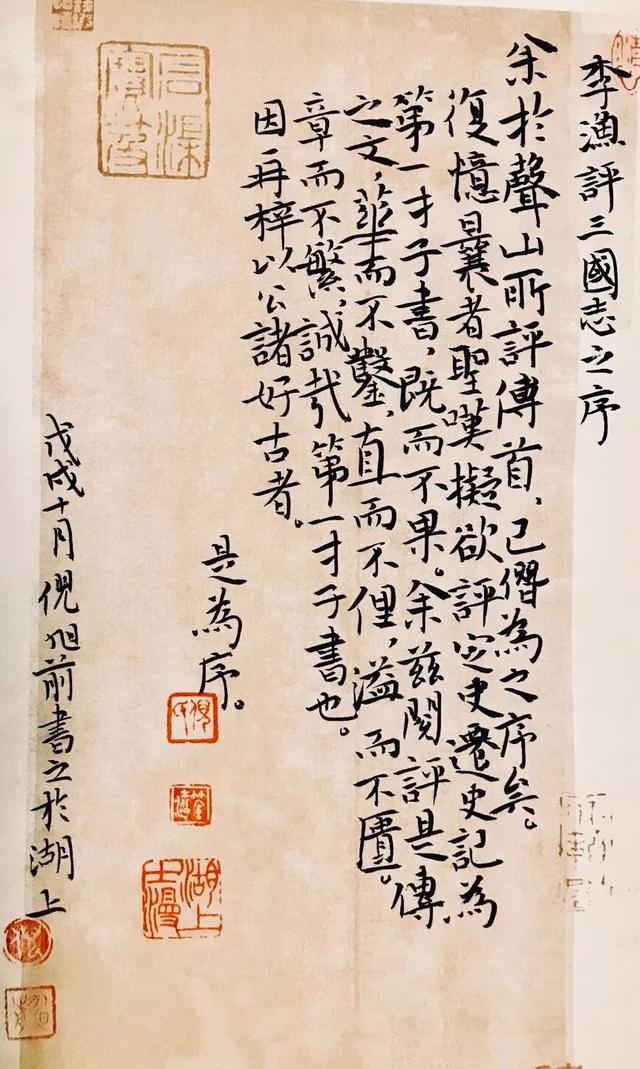 李漁評三國志之序
余於聲山所評傳首，已僭為之序矣。
復憶曩者聖嘆擬欲評定史遷史記為
第一才子書，既而不果。余茲閱評是傳
之文，華而不鑿，直而不俚，溢而不匱。
章而不繁，誠哉第一才子書也。
因再梓以公諸好古者。
是為序。
倪氏
湖上
戊戌十月倪旭前書之於湖上